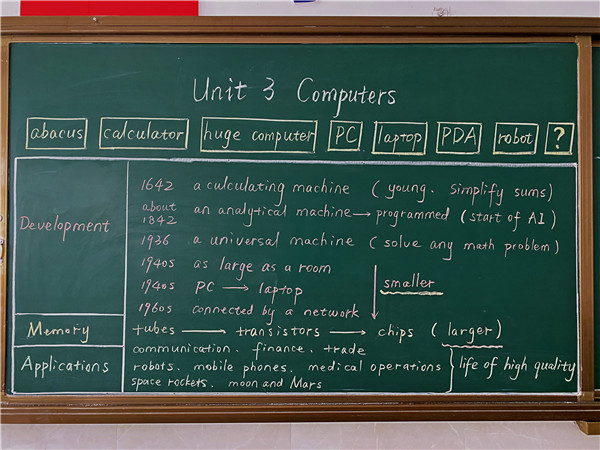 Unit 3 Computers
abacus calculator huge computer PC laptop PDA robot ?
Development
1642 a culculating machine (young. Simplify sums)
about 1842 an analytical machine → programmed (start of AI)
1936 a universal machine (solve any math problem)
1940s as large as a room
1940s PC → laptop
smaller
1960s connected by a network
Memory tubes → transistors → chips (larger)
Applications
communication. finance. trade
robots. mobile phones. medical operations
space rockets. moon and Mars
life of high quality